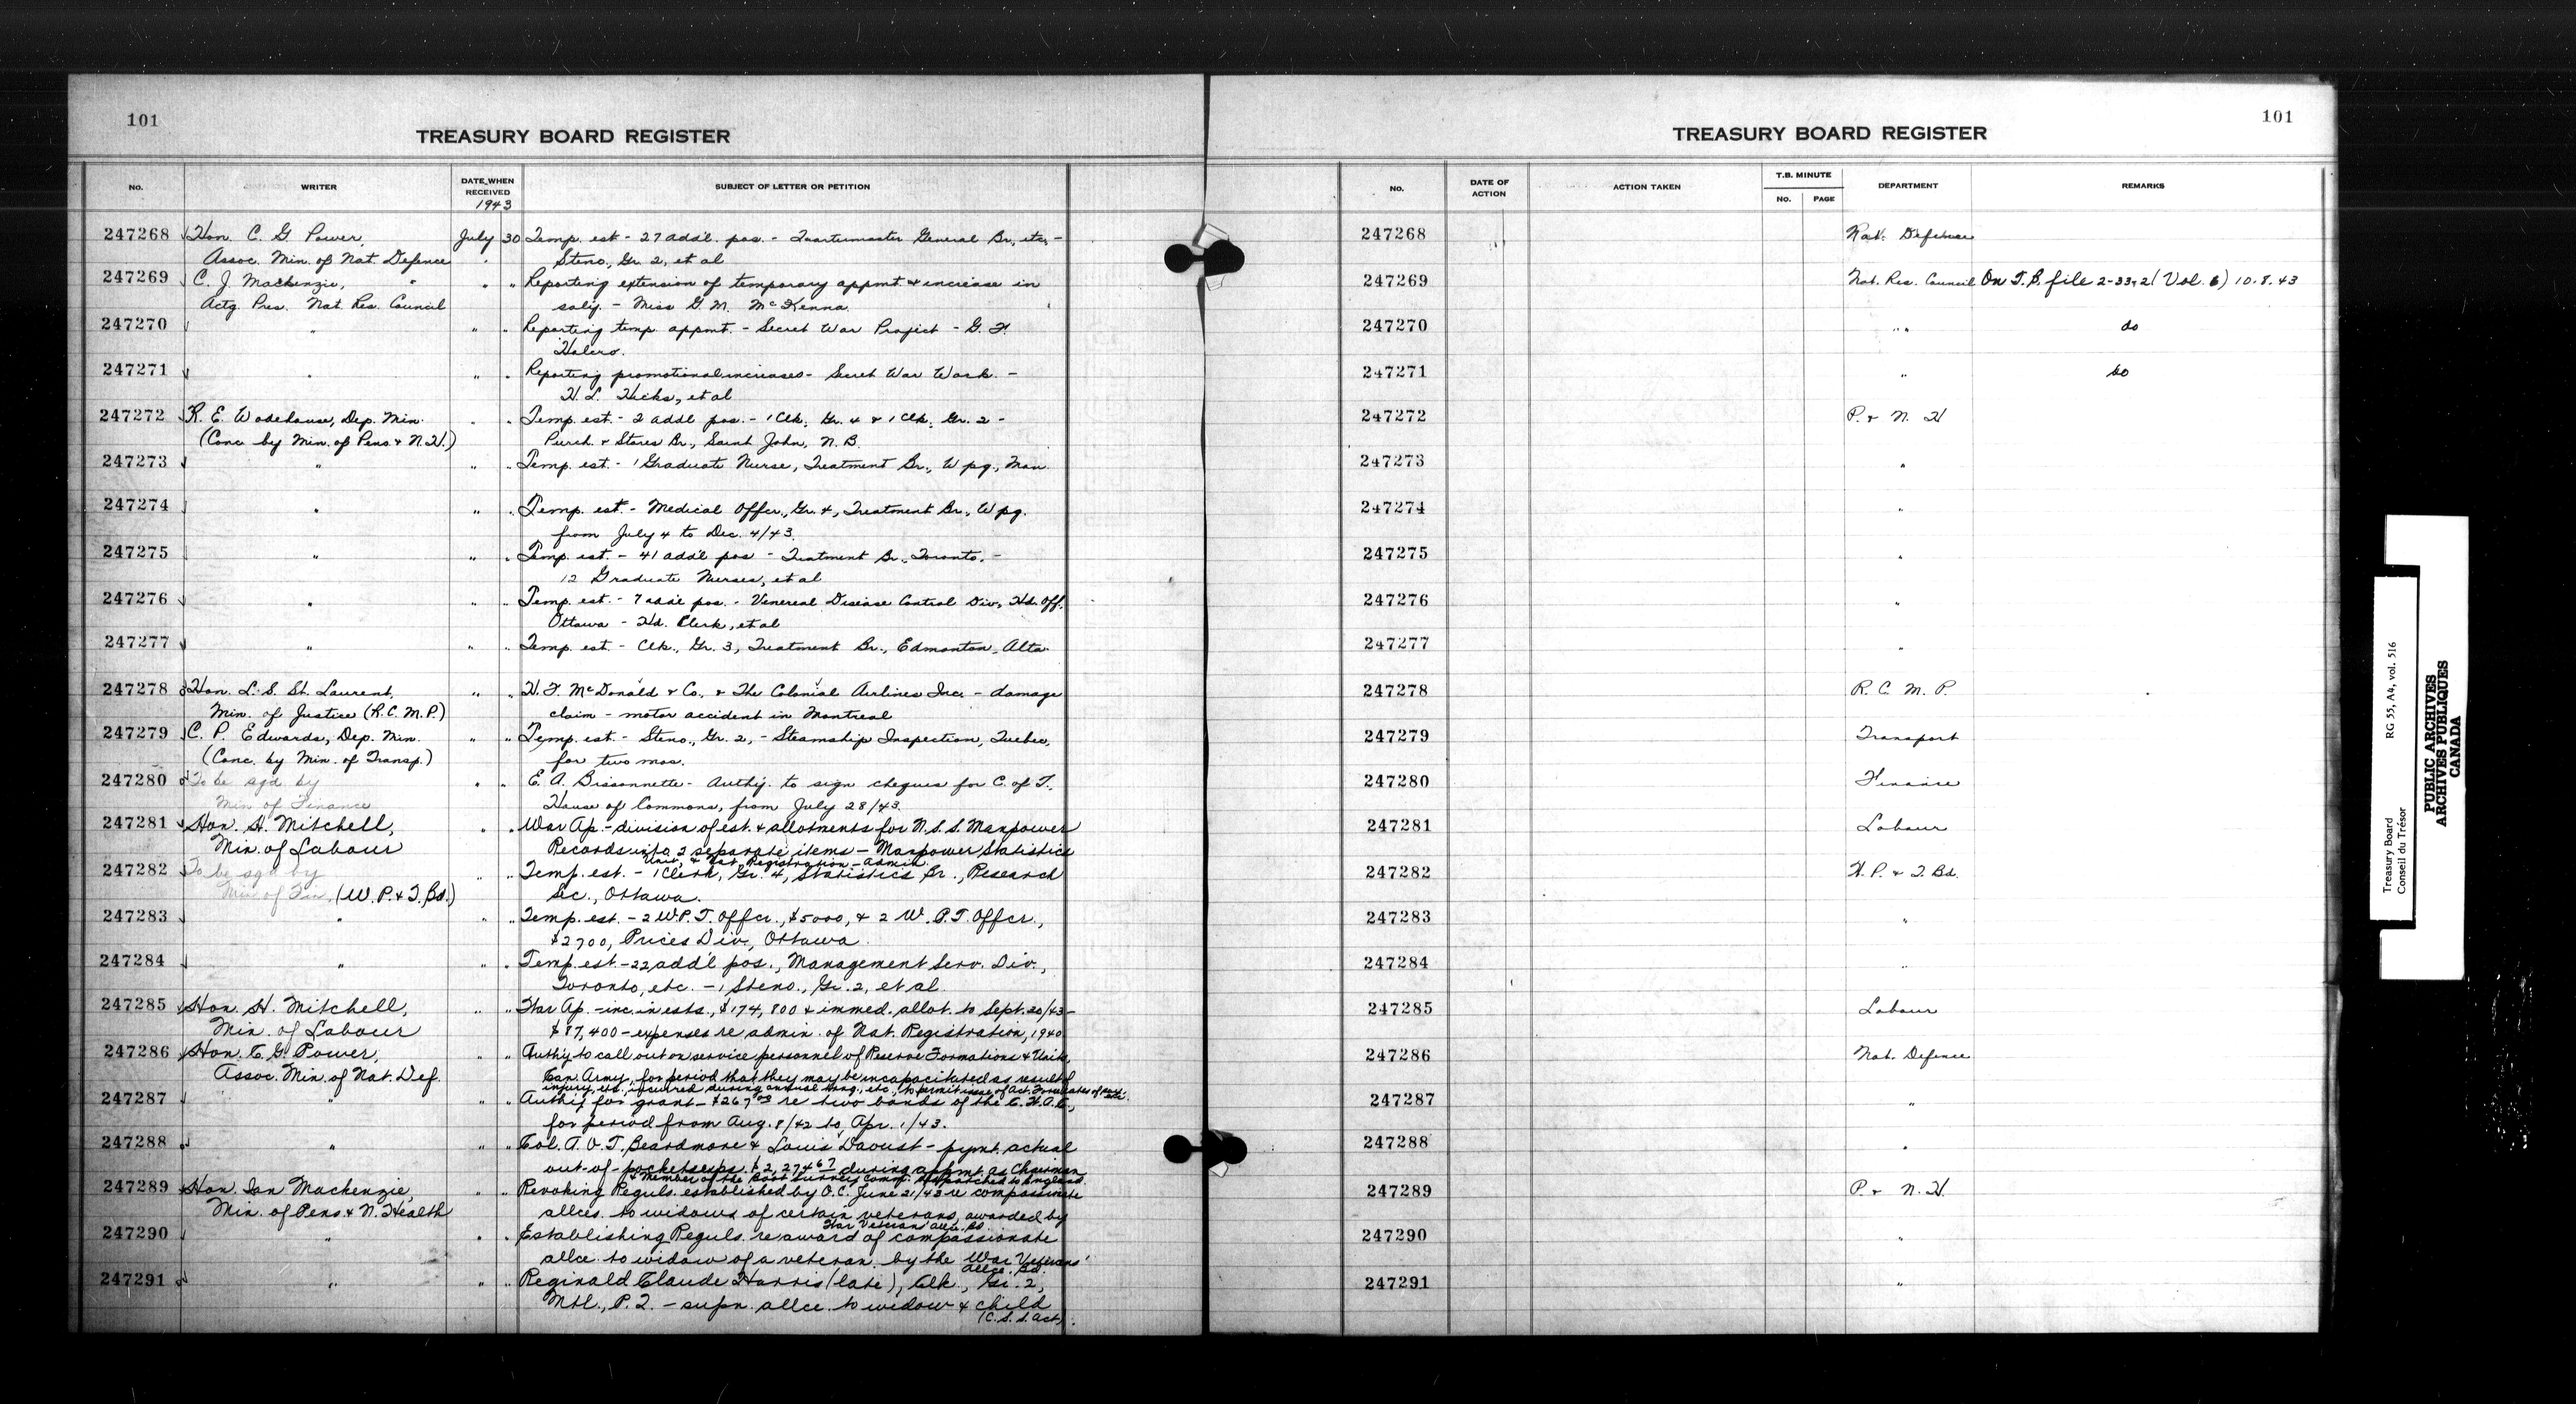 101
TREASURY BOARD REGISTER
No.
WRITER
DATE WHEN RECEIVED
1943
SUBJECT OF LETTER OR PETITION
247268 Hon. C. G. Power, July 30 Temp. est - 27 add'l. pos. - Quartermaster General Br., etc. -
Assoc. Min. of Nat. Defence Steno., Gr. 2, et al
247269 C. J. Mackenzie, " " Reporting extension of temporary appmt. & increase in
Actg. Pres. Nat. Res. Council saly. - Miss G. M. McKenna
247270 " " " Reporting temp. appmt. - Secret War Project - G. F.
247271 " " " Reporting promotional increases - Secret War Work. -
H. L. Hicks, et al
247272 R. E. Wodehouse, Dep. Min. " " Temp. est. - 2 addl pos. - 1 Clk. Gr. 4 & 1 Clk. Gr. 2 -
(Conc by Min. of Pens. & N. H.) Purch. & Stores Br., Saint John, N. B.
247273 " " " Temp. est. - 1 Graduate Nurse, Treatment Br., Wpg., Man.
247274 " " " Temp. est. - Medical Offcr., Gr. 4, Treatment Br., Wpg.
from July 4 to Dec. 4/43.
247275 " " " Temp. est. - 41 add'l pos - Treatment Br., Toronto. -
12 Graduate Nurses, et al
247276 " " " Temp. est. - 7 add'l pos. - Venereal Disease Control Div., Hd. Off.
Ottawa - Hd. Clerk, et al
247277 " " " Temp. est. - Clk., Gr. 3, Treatment Br., Edmonton, Alta.
247278 Hon. L. S. St. Laurent, " " H. F. McDonald & Co. & The Colonial Airlines Inc. - damage
Min. of Justice (R. C. M. P.) claim - motor accident in Montreal
247279 C. P. Edwards, Dep. Min. " " Temp. est - Steno., Gr. 2, - Steamship Inspection, Quebec,
(Conc. by Min. of Transp.) for two mos.
247280 To be sgd by " " E. A. Bissonnette - Authy. to sign cheques for C. of T.,
Min of Finance House of Commons, from July 28/43.
247281 Hon. H. Mitchell, " " War Ap. - division of est. & allotments for N. S. S. Manpower
Min. of Labour Records into 2 separate items - Manpower Statistics
Unit, & Nat. Registration - Admin.
247282 To be sgd by " " Temp. est. - 1 Clerk, Gr. 4, Statistics Br., Research
Min of Fin. (W. P. & T. Bd.) Sec., Ottawa.
247283 " " " Temp. est. - 2 W. P. T. Offcr., $5000, & 2 W. P. T. Offcr.,
$2700, Prices Div., Ottawa.
247284 " " " Temp. est. - 22 add'l pos., Management Serv. Div.,
Toronto, etc. - 1 Steno., Gr. 2, et al.
247285 Hon. H. Mitchell, " " War Ap. - inc. in ests., $174,800 & immed. allot. to Sept. 30/43 -
Min. of Labour $87,400 - expenses re admin. of Nat. Registration, 1940
247286 Hon. C. G. Power, " " Authy to call out on service personnel of Reserve Formations & Units,
Assoc. Min. of Nat. Def. Can. Army, for period that they may be incapacitated as result of
injury, etc. incurred during annual trng., etc., to permit issue of Act. Force rates of
247287 " " " Authy for grant - $267.00 re two bands of the C. W. A. C.,
for period from Aug. 8/42 to Apr. 1/43.
247288 " " " Col. A. O. T. Beardmore & Louis Daoust - pymt. actual
out-of-pocket exps. $2,274.67 during appmt. as Chairman
& Member of the Boot Survey Comm. dispatched to England.
247289 Hon. Ian Mackenzie, " " Revoking Reguls. established by O. C. June 21/43 re compassionate
Min. of Pens. & N. Health allces. to widows of certain veterans, awarded by
War Veterans' Allce. Bd.
247290 " " " Establishing Reguls. re award of compassionate
allce. to widow of a veteran by the War Veterans'
Allce. Bd.
247291 " " " Reginald Claude Harris (late), Clk., Gr. 2,
Mtl., P. Q. - supn. allce. to widow & child
(C. S. S. Act).
101
TREASURY BOARD REGISTER
No.
DATE OF ACTION
ACTION TAKEN
T.B. MINUTE
No.
PAGE
DEPARTMENT
REMARKS
247268 Nat. Defense
247269 Nat. Res. Council On T. B. file 2-33-2 (Vol. 6) 10.8.43
247270 " " do
247271 " do
247272 P. & N. H
247273 "
247274 "
247275 "
247276 "
247277 "
247278 R. C. M. P.
247279 Transport
247280 Finance
247281 Labour
247282 W. P. & T. Bd.
247283 "
247284 "
247285 Labour
247286 Nat. Defence
247287 "
247288 "
247289 P. & N. H.
247290 "
247291 "
Treasury Board
Conseil du Trésor
RG 55, A4, vol. 516
PUBLIC ARCHIVES
ARCHIVES PUBLIQUES
CANADA